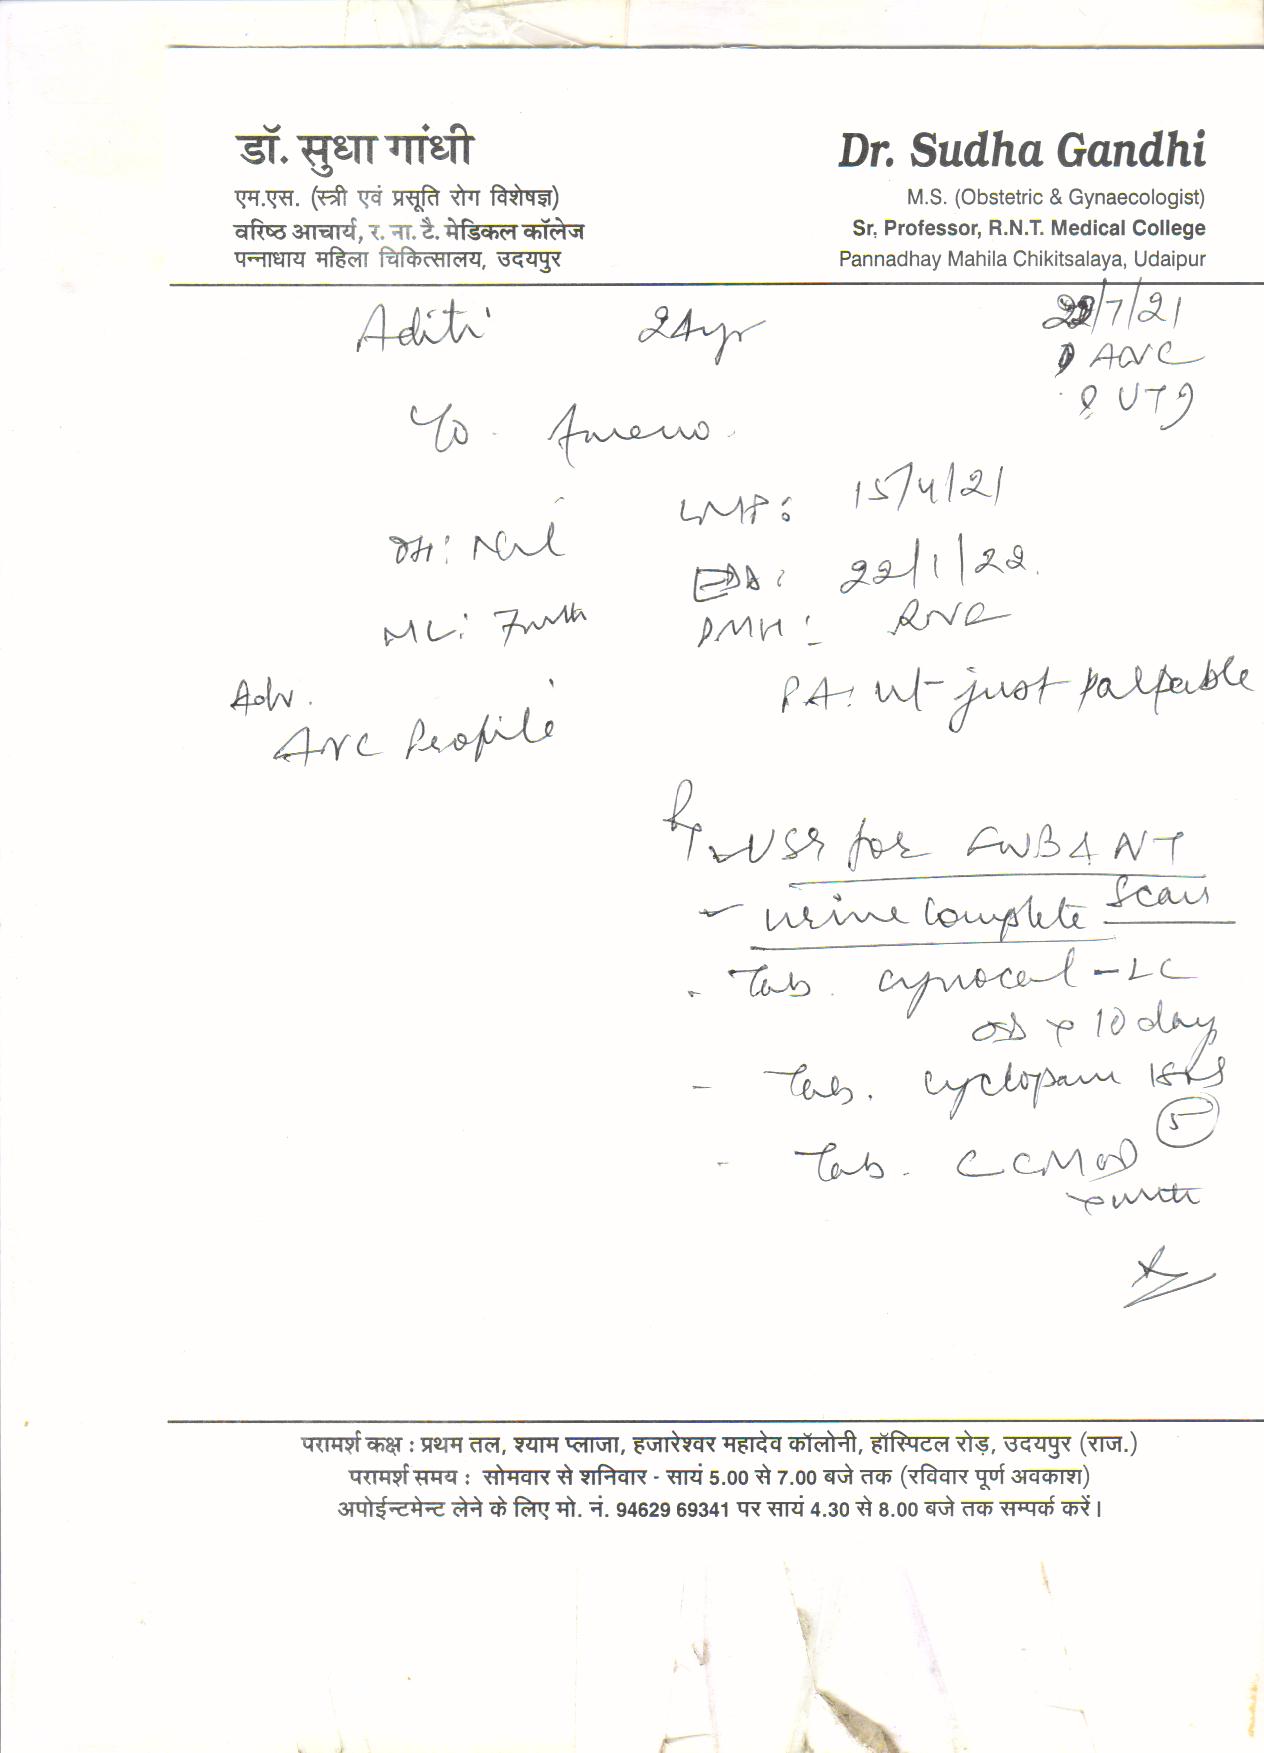 डॉ. सुधा गांधी
एम.एस. (स्त्री एवं प्रसूति रोग विशेषज्ञ)
वरिष्ठ आचार्य, र. ना. टै. मेडिकल कॉलेज
पन्नाधाय महिला चिकित्सालय, उदयपुर
Dr. Sudha Gandhi
M.S. (Obstetric & Gynaecologist)
Sr. Professor, R.N.T. Medical College
Pannadhay Mahila Chikitsalaya, Udaipur
Aditi 24yr /7/21
ANC
UTI
LMP: 15/4/21
OH: Nil
EDD: 22/1/22.
ML:
PMH:
Adv.
PA: ut just palpable
ANC Profile
USG for FWB & NT
Scan
- urine complete
- Tab. -LC
OD x 10 day
- Tab. cyclopam 1SOS
5
- Tab. CCM OD
परामर्श कक्ष : प्रथम तल, श्याम प्लाजा, हजारेश्वर महादेव कॉलोनी, हॉस्पिटल रोड़, उदयपुर (राज.)
परामर्श समय : सोमवार से शनिवार - सायं 5.00 से 7.00 बजे तक (रविवार पूर्ण अवकाश)
अपोईन्टमेन्ट लेने के लिए मो. नं. 94629 69341 पर सायं 4.30 से 8.00 बजे तक सम्पर्क करें।